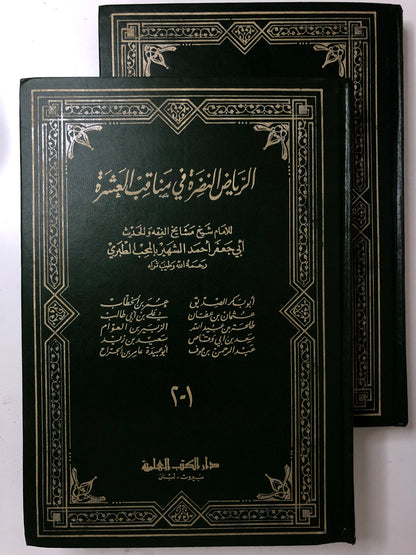 الرياض النضرة في مناقب العشرة
للإمام شيخ مشايخ الفقه والحديث
أبي جعفر أحمد الشهير بالمحب الطبري
رحمه الله وطيب ثراه
أبو بكر الصديق عمر بن الخطاب
عثمان بن عفان علي بن أبي طالب
طلحة بن عبيد الله الزبير بن العوام
سعد بن أبي وقاص سعيد بن زيد
عبد الرحمن بن عوف أبو عبيدة عامر بن الجراح
١-٢
دار الكتب العلمية
بيروت - لبنان